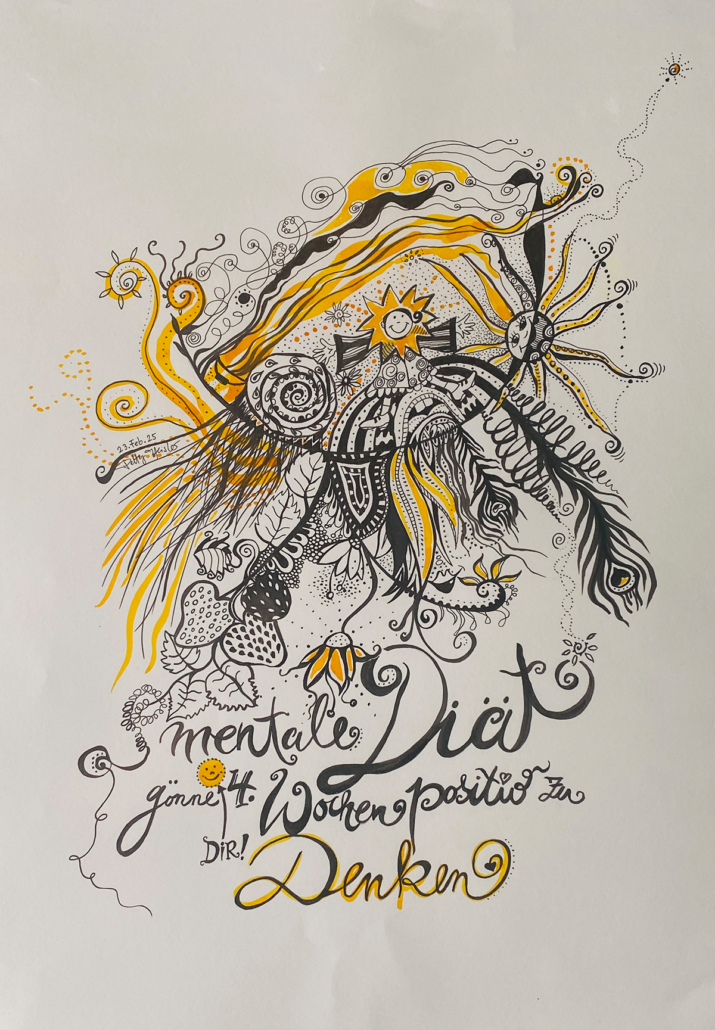 23. Feb. 25
mentale Diät
gönne 4. Wochen positiv zu
DIR!
Denken